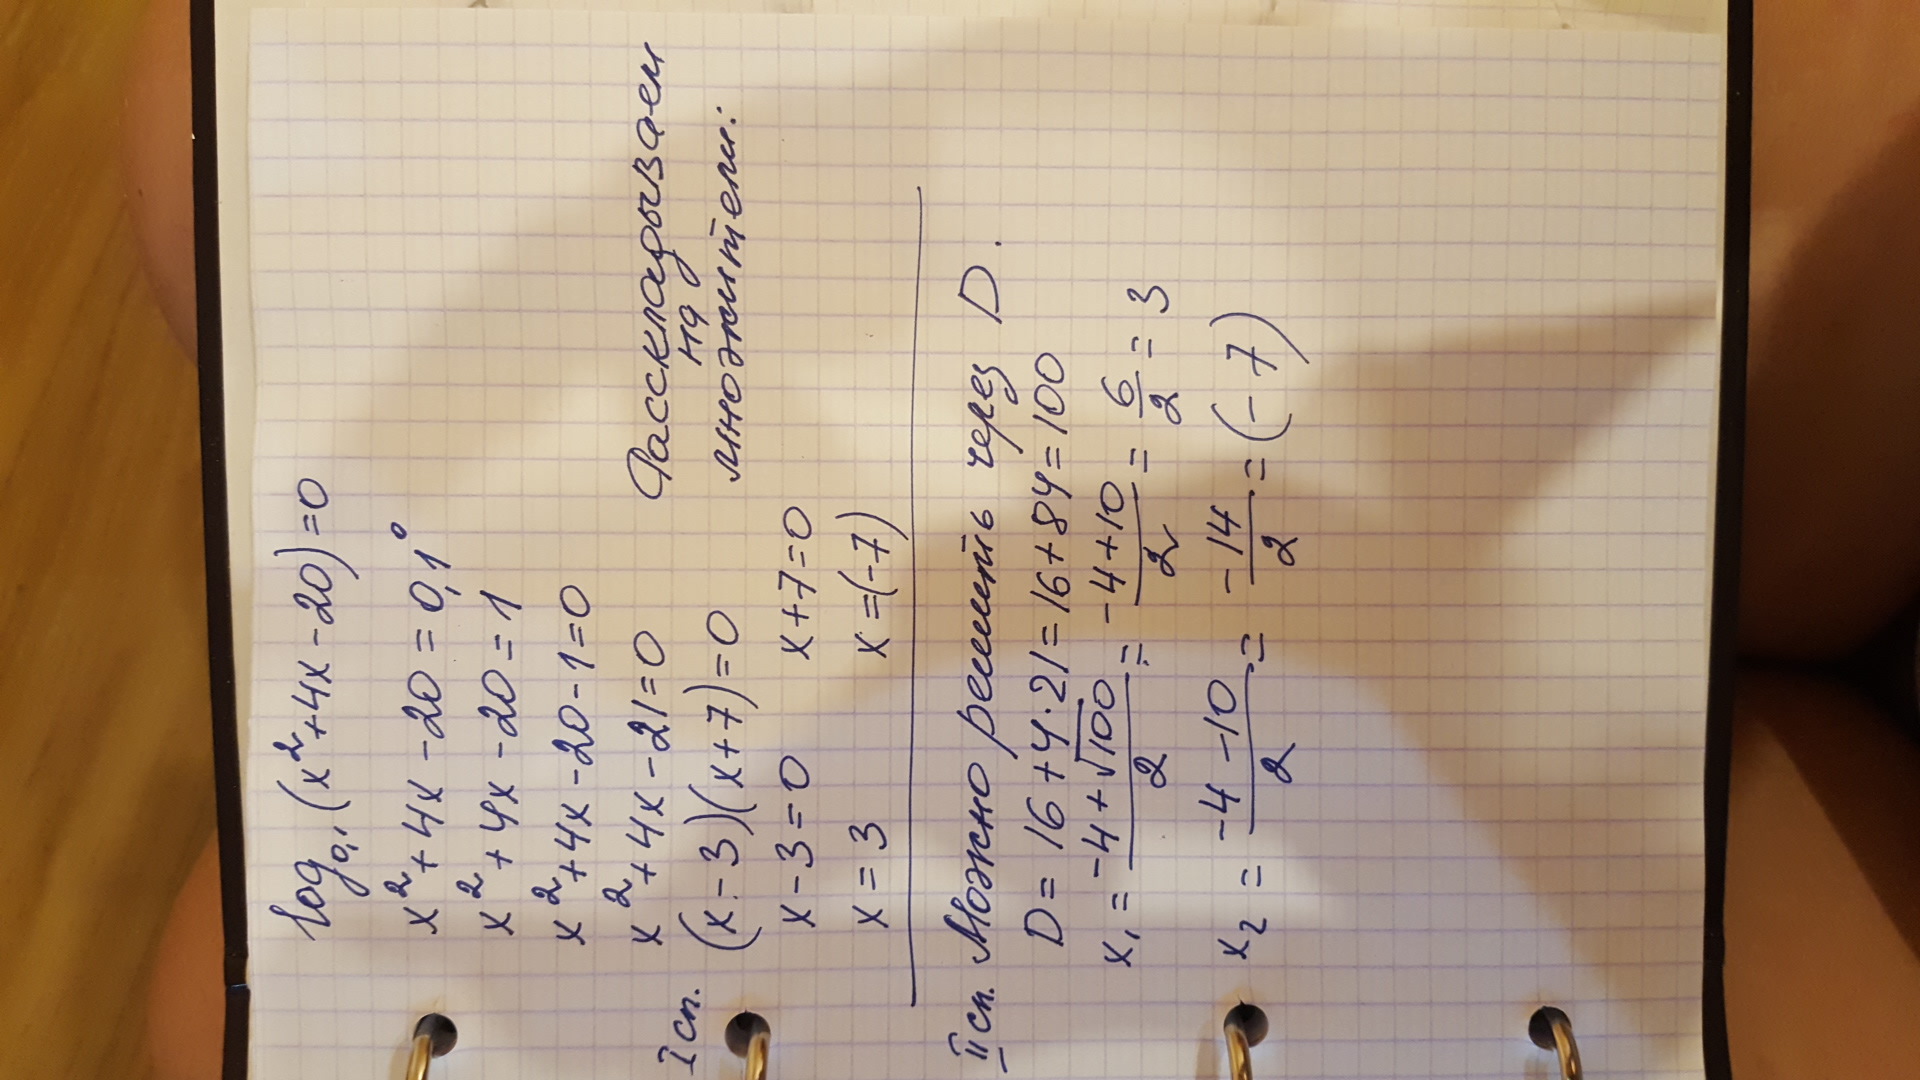 log₀,₁(x²+4x-20)=0
x²+4x-20=0,1⁰
x²+4x-20=1
x²+4x-20-1=0
x²+4x-21=0
Расскладываем
на
множители:
I сп. (x-3)(x+7)=0
x-3=0 x+7=0
x=3 x=(-7)
II сп. Можно решить через D.
D=16+4·21=16+84=100
x₁=(-4+√100)/2=(-4+10)/2=6/2=3
x₂=(-4-10)/2=-14/2=(-7)